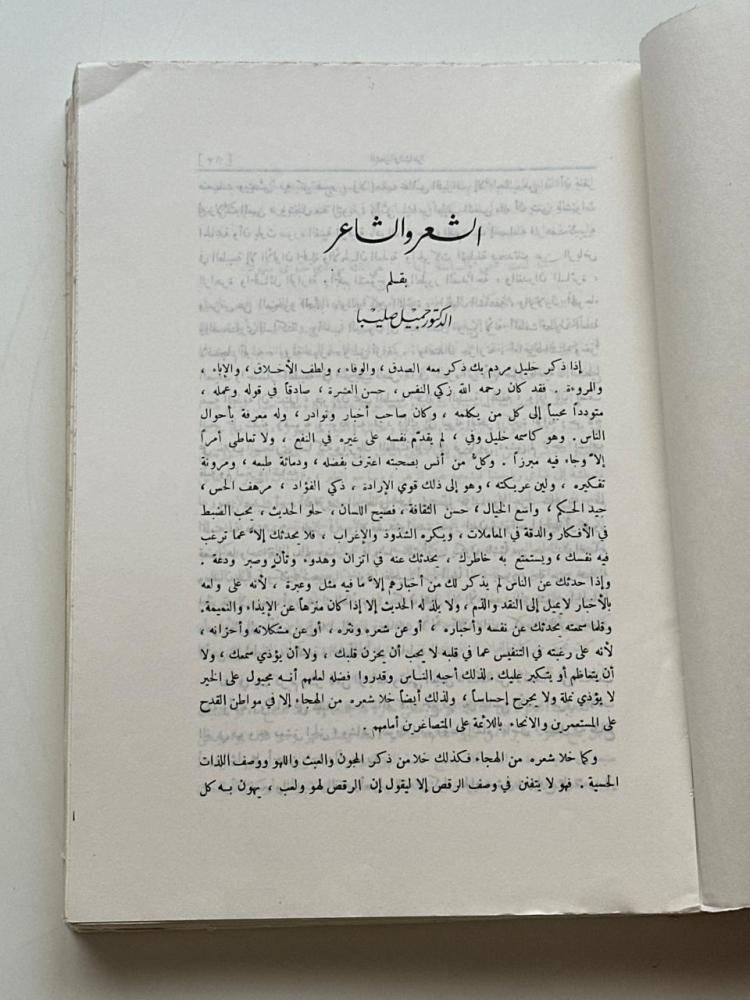 الشعر والشاعر
بقلم
الدكتور جميل صليبا
إذا ذكر خليل مردم بك ذكر معه الصدق ، والوفاء ، ولطف الأخلاق ، والإباء ،
والمروءة . فقد كان رحمه الله زكي النفس ، حسن العشرة ، صادقاً في قوله وعمله ،
متودداً محبباً إلى كل من يكلمه ، وكان صاحب أخبار ونوادر ، وله معرفة بأحوال
الناس . وهو كاسمه خليل وفي ، لم يقدّم نفسه على غيره في النفع ، ولا تعاطى أمراً
إلا وجاء فيه مبرزاً . وكلُّ من أنس بصحبته اعترف بفضله ، ودماثة طبعه ، ومرونة
تفكيره ، ولين عريكته ، وهو إلى ذلك قوي الإرادة ، ذكي الفؤاد ، مرهف الحس ،
جيد الحكم ، واسع الخيال ، حسن الثقافة ، فصيح اللسان ، حلو الحديث ، يحب الضبط
في الأفكار والدقة في المعاملات ، ويكره الشذوذ والإغراب ، فلا يحدثك إلا عما ترغب
فيه نفسك ، ويستمتع به خاطرك ، يحدثك عنه في اتزان وهدوء وتأنٍ وصبر ودعة .
وإذا حدثك عن الناس لم يذكر لك من أخبارهم إلا ما فيه مثل وعبرة ، لأنه على ولعه
بالأخبار لا يميل إلى النقد والذم ، ولا يلذ له الحديث إلا إذا كان منزهاً عن الإيذاء والنميمة.
وقلما سمعته يحدثك عن نفسه وأخباره ، أو عن شعره ونثره ، أو عن مشكلاته وأحزانه ،
لأنه على رغبته في التنفيس عما في قلبه لا يحب أن يحزن قلبك ، ولا أن يؤذي سمعك ، ولا
أن يتعاظم أو يتكبر عليك . لذلك أحبه الناس وقدروا فضله لعلمهم أنه مجبول على الخير
لا يؤذي نملة ولا يجرح إحساساً ، ولذلك أيضاً خلا شعره من الهجاء إلا في مواطن القدح
على المستعمرين والانحاء باللائمة على المتصاغرين أمامهم .
وكما خلا شعره من الهجاء فكذلك خلا من ذكر المجون والعبث واللهو ووصف اللذات
الحسية . فهو لا يتفنن في وصف الرقص إلا ليقول إن الرقص لهو ولعب ، يهون به كل